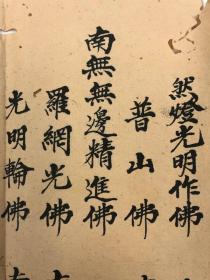 然燈光明作佛
普山佛
南無無邊精進佛
羅網光佛
光明輪佛